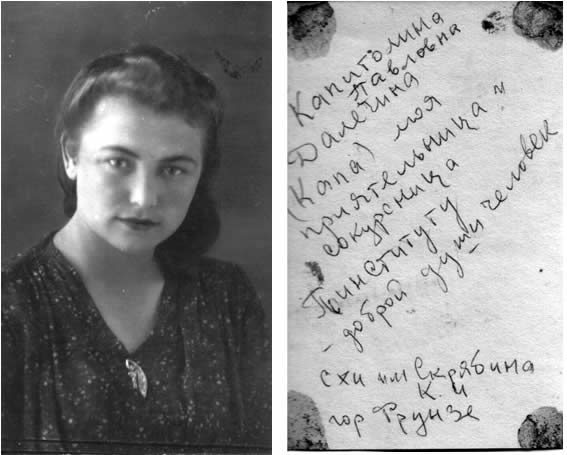 Капитолина
Павловна
Далечина
(Капа) моя
приятельница и
сокурсница
по институту
- доброй души человек
СХИ им Скрябина
К. И
гор Фрунзе